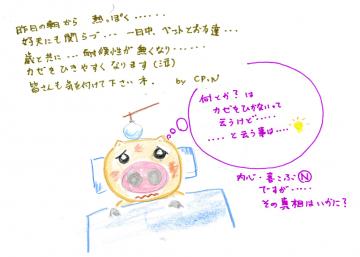 昨日の朝から 熱っぽく‥‥‥
好天にも関らづ‥‥ 一日中、ベットとお友達‥‥
歳と共に‥‥耐候性が無くなり‥‥‥
カゼをひきやすくなります(泣)
皆さんも気を付けて下さいネ、 by CP.N
何とか?は
カゼをひかないって
云うけど‥‥‥
‥‥と云う事は‥‥
内心・喜こぶⓃ
ですが‥‥‥
その真相はいかに?